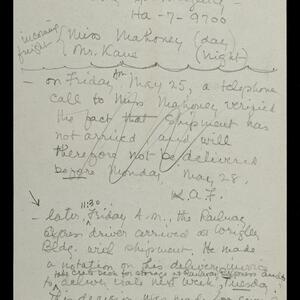 Ha-7-9700
incoming
freight
Miss Mahoney (day)
Mr. Kane (night)
- On Friday AM May 25, a telephone
call to Miss Mahoney verified
the fact that shipment has
not arrived and will
therefore not be delivered
before Monday May, 28.
K.A.F.
11:30
- Later, Friday A.M., the Railway
Express driver arrived at Wrigley
Bldg. with shipment. He made
a notation on his delivery
take crate back for storage at Railway Express and
to deliver crate next week, Tuesday
This decision was made